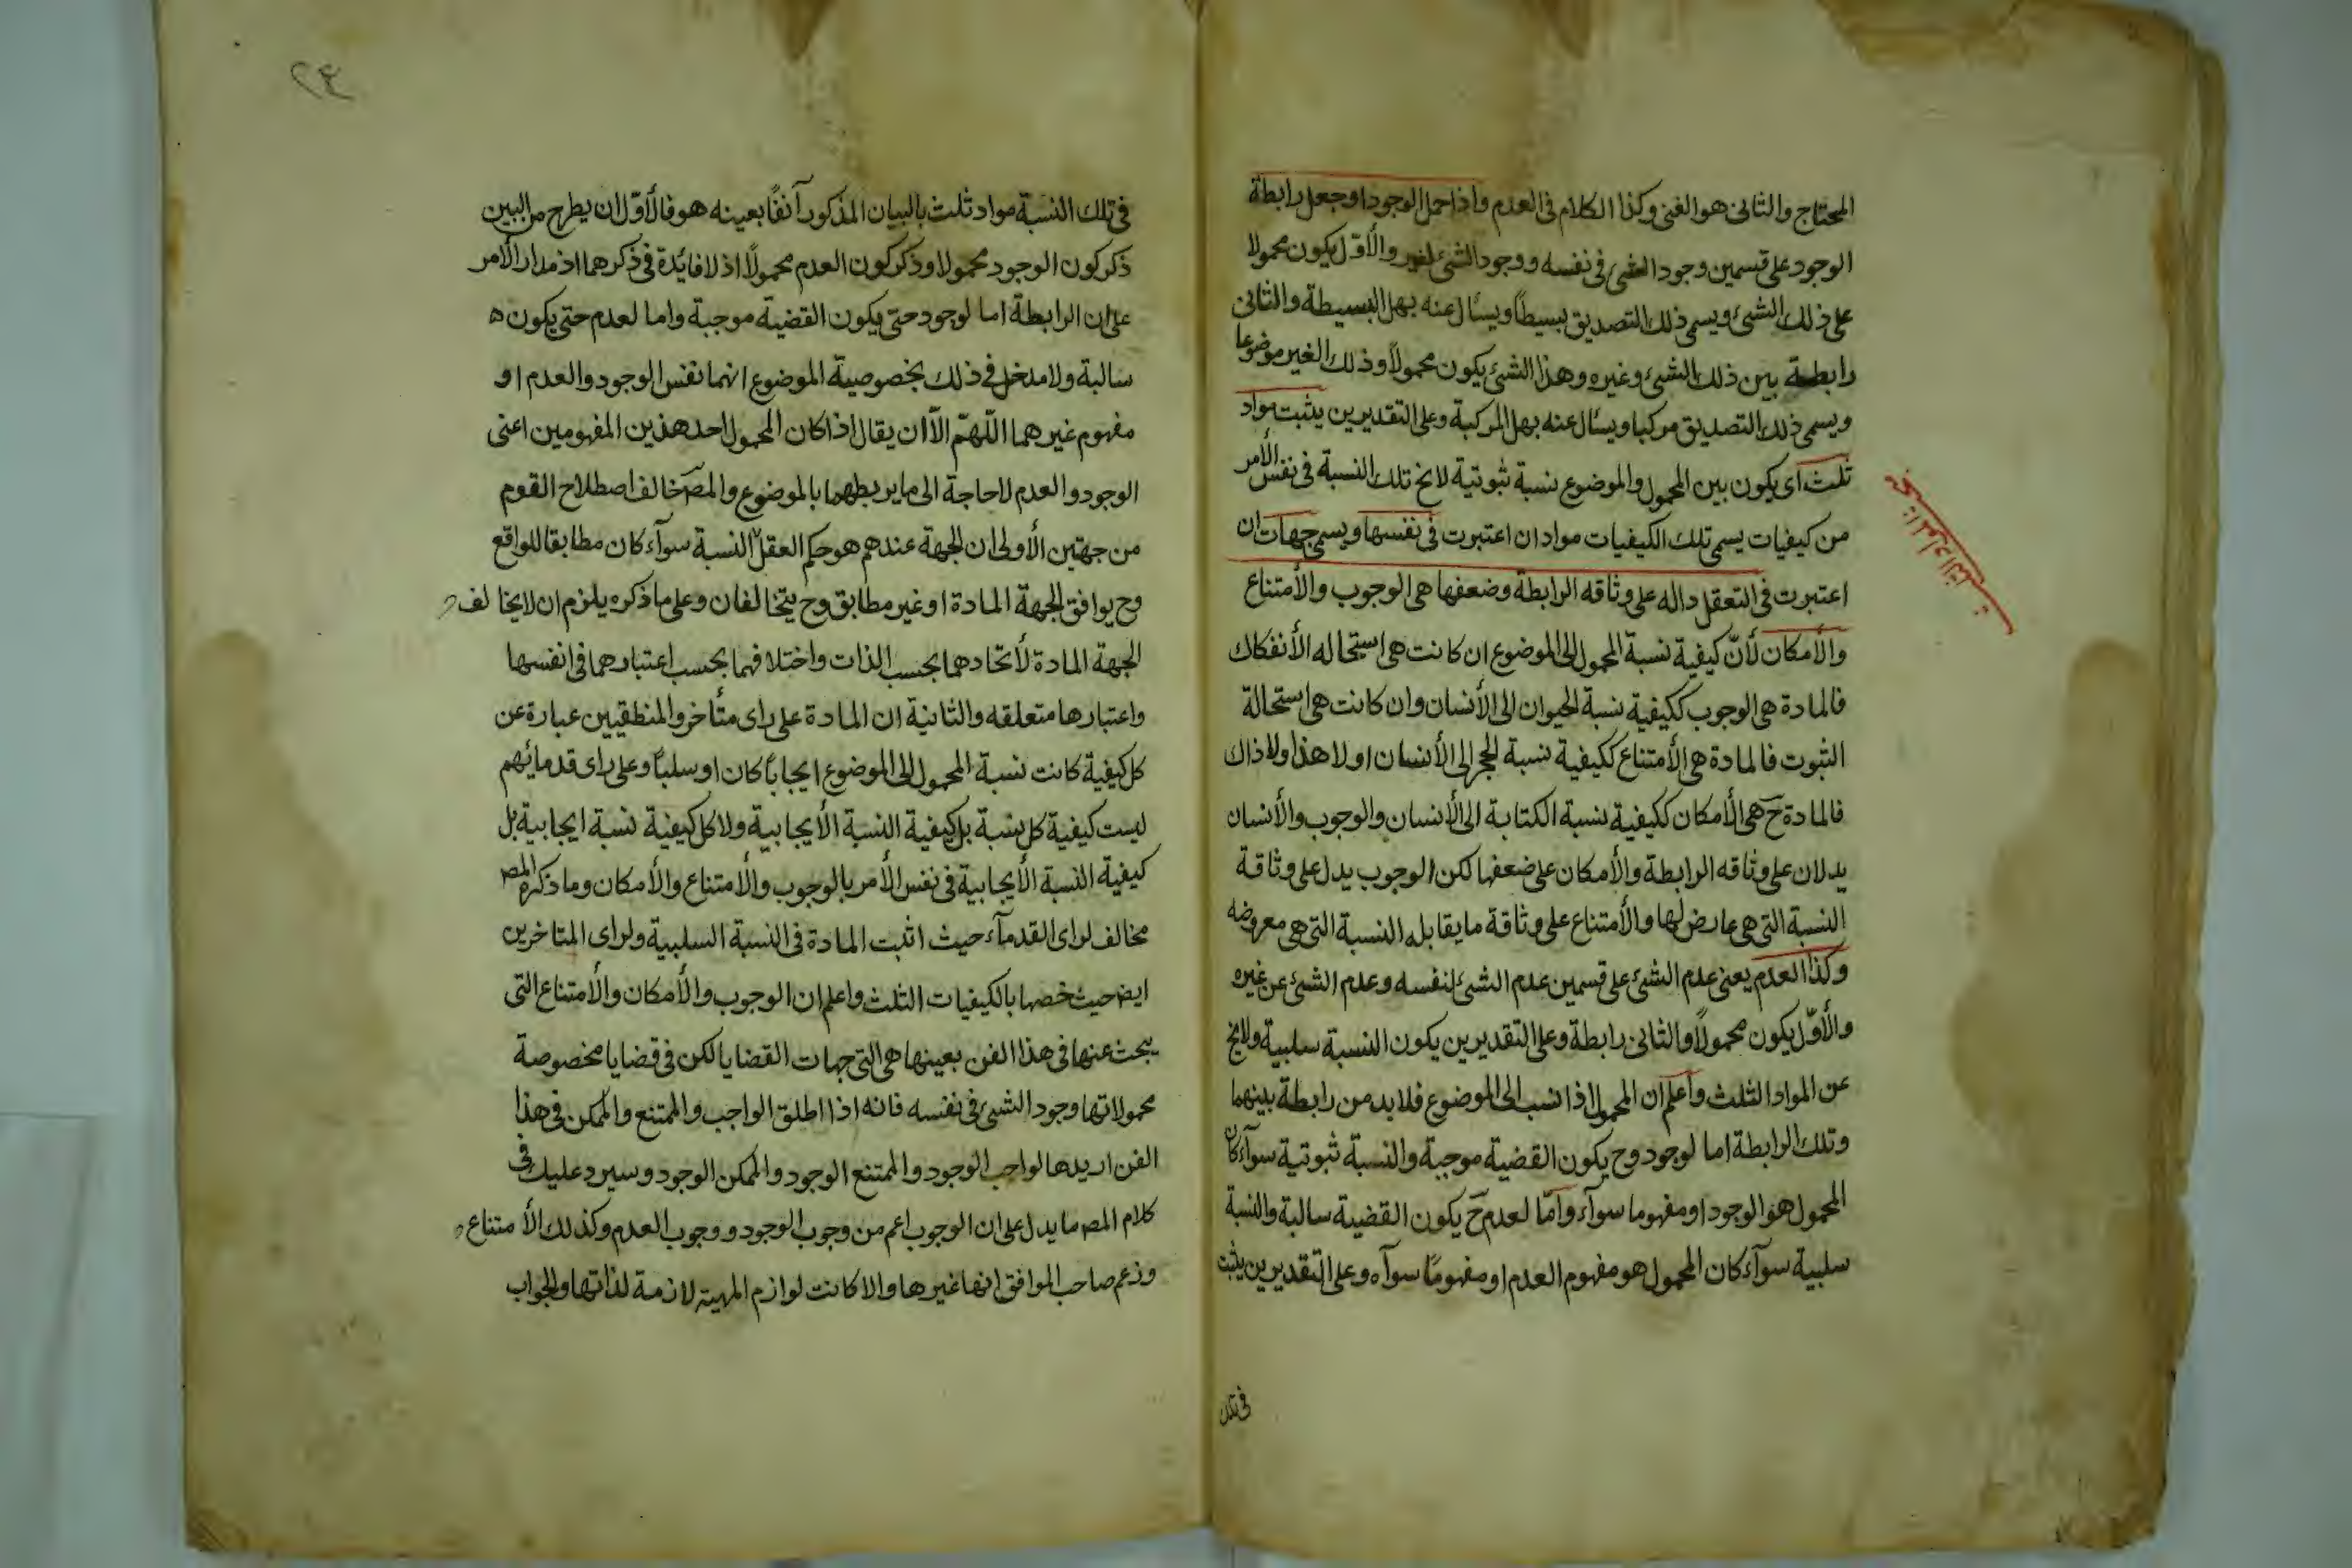 المحتاج والثانى هو الغنى وكذا الكلام فى العدم واذا حمل الوجود او جعل رابطة
الوجود على قسمين وجود الشئ فى نفسه ووجود الشئ لغيره والأوّل يكون محمولا
على ذلك الشئ ويسمى ذلك التصديق بسيطاً ويسأل عنه بهل البسيطة والثانى
رابطة بين ذلك الشئ وغيره وهذا الشئ يكون محمولاً وذلك الغير موضوعا
ويسمى ذلك التصديق مركبا ويسأل عنه بهل المركبة وعلى التقديرين يثبت مواد
ثلث اى يكون بين المحمول والموضوع نسبة ثبوتية لايخ تلك النسبة فى نفس الأمر
من كيفيات يسمى تلك الكيفيات مواد ان اعتبرت فى نفسها ويسمى جهات ان
اعتبرت فى التعقل داله على وثاقه الرابطة وضعفها هى الوجوب والأمتناع
والأمكان لأنّ كيفية نسبة المحمول الى الموضوع ان كانت هى استحاله الأنفكاك
فالمادة هى الوجوب ككيفية نسبة الحيوان الى الأنسان وان كانت هى استحالة
الثبوت فالمادة هى الأمتناع ككيفية نسبة الحجر الى الأنسان او لا هذا ولا ذاك
فالمادة ح هى الأمكان ككيفية نسبة الكتابة الى الأنسان والوجوب والأنسان
يدلان على وثاقه الرابطة والأمكان على ضعفها لكن الوجوب يدل على وثاقة
النسبة التى هى عارض لها والأمتناع على وثاقة ما يقابله النسبة التى هى معروضه
وكذا العدم يعنى عدم الشئ على قسمين عدم الشئ لنفسه وعدم الشئ عن غيره
والأوّل يكون محمولاً والثانى رابطة وعلى التقديرين يكون النسبة سلبية ولايخ
عن المواد الثلث واعلم ان المحمول اذا نسب الى الموضوع فلا بد من رابطة بينهما
وتلك الرابطة اما لوجود وح يكون القضية موجبة والنسبة ثبوتية سوآء كان
المحمول هو الوجود او مفهوما سوآء وامّا لعدم ح يكون القضية سالبة والنسبة
سلبية سوآء كان المحمول هو مفهوم العدم او مفهومًا سوآه وعلى التقديرين يثبت
فى تلك
٢٤
فى تلك النسبة مواد ثلث بالبيان المذكور آنفاً بعينه هو فالأوّل ان يطرح من البين
ذكر كون الوجود محمولا وذكر كون العدم محمولاً اذ لا فايدة فى ذكرهما اذ مدار الأمر
على ان الرابطة اما لوجود حتى يكون القضية موجبة واما لعدم حتى يكون
سالبة ولا مدخل فى ذلك بخصوصية الموضوع انهما نفس الوجود والعدم او
مفهوم غيرهما اللّهمّ الّا ان يقال اذا كان المحمول احد هذين المفهومين اعنى
الوجود والعدم لا حاجة الى ما يربطهما بالموضوع والمص خالف اصطلاح القوم
من جهتين الأولى ان الجهة عندهم هو حكم العقل النسبة سوآء كان مطابقا للواقع
وح يوافق الجهة المادة او غير مطابق وح يتخالفان وعلى ما ذكره يلزم ان لا يخالف
الجهة المادة لأتحادهما بحسب الذات واختلافهما بحسب اعتبارهما فى انفسها
واعتبارها متعلقه والثانية ان المادة على راى متأخرو المنطقيين عبارة عن
كل كيفية كانت نسبة المحمول الى الموضوع ايجاباً كان او سلباً وعلى راى قدمائهم
ليست كيفية كل نسبة بل كيفية النسبة الأيجابية ولا كل كيفية نسبة ايجابية بل
كيفية النسبة الأيجابية فى نفس الأمر بالوجوب والأمتناع والأمكان وما ذكره المص
مخالف لراى القدمآء حيث اثبت المادة فى النسبة السلبية ولراى المتاخرين
ايض حيث خصها بالكيفيات الثلث واعلم ان الوجوب والأمكان والأمتناع التى
يبحث عنها فى هذا الفن بعينها هى التى جهات القضايا لكن فى قضايا مخصوصة
محمولاتها وجود الشئ فى نفسه فانه اذا اطلق الواجب والممتنع والممكن فى هذا
الفن اريد بها لواجب الوجود والممتنع الوجود والممكن الوجود وسيرد عليك فى
كلام المص ما يدل على ان الوجوب اعم من وجوب الوجود ووجوب العدم وكذلك الأمتناع
وزعم صاحب الموافق انها غيرها والا كانت لوازم المهية لازمة لذاتها والجواب